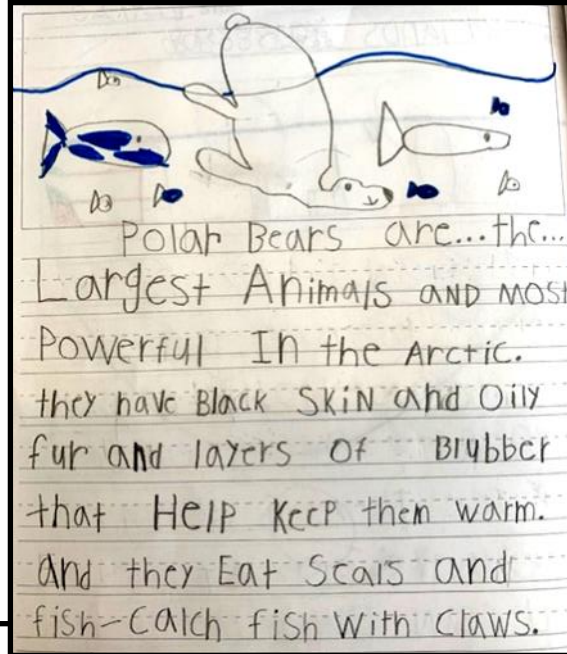 Polar Bears are...the...
Largest Animals AND MOST
Powerful In the Arctic.
they have Black SKiN and Oily
fur and layers of Blubber
that Help Keep them warm.
and they Eat Seals and
fish-Catch fish with Claws.